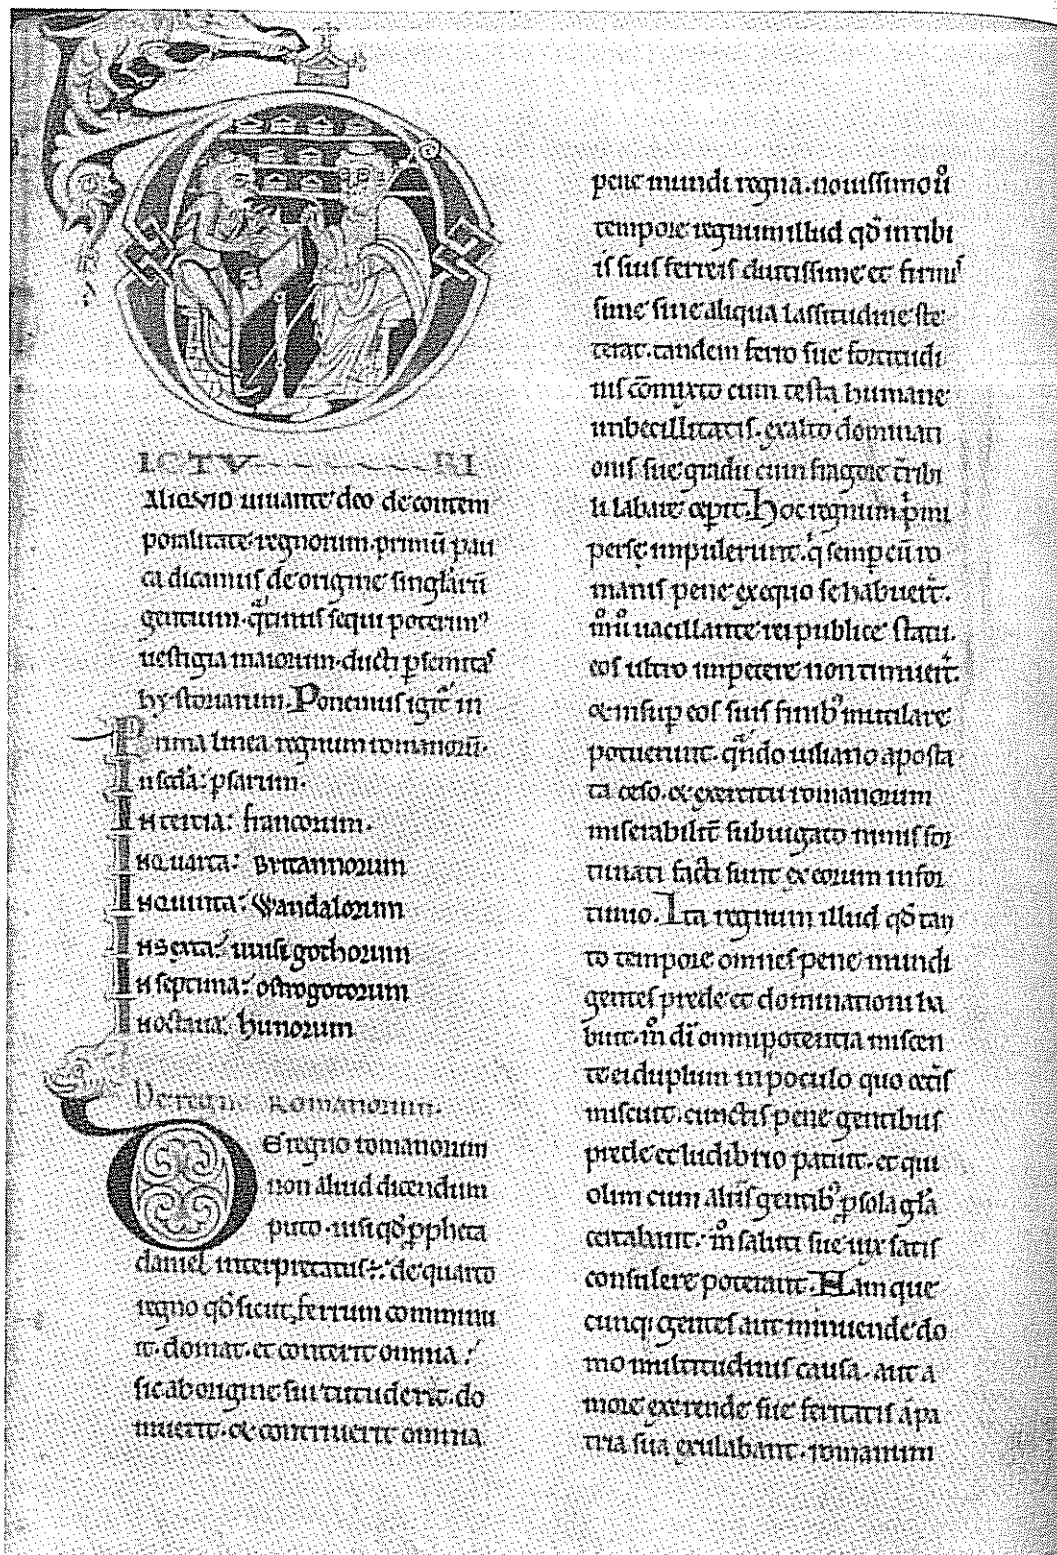 ICTV RI
ALIQVID iuuante deo de contem
poralitate regnorum. primū pau
ca dicamus de origine singłarū
gentium. qͣtinus sequi poterimꝰ
uestigia maiorum. ducti ꝑ semitaˢ
hystoriarum. Ponemus igit̄ in
Prima linea regnum romanorū.
In scđa: ꝑsarum.
In tercia: francorum.
In quarta: Brittannorum
In quinta: Wandalorum
In Sexta: uuisi gothorum
In septima: ostrogotorum
In octaua: hunorum
De regno Romanorum.
De regno romanorum
non aliud dicendum
puto. nisi qđ ꝓpheta
daniel interpretatus ÷. de quarto
regno qđ sicut ferrum comminu
it. domat. et conterit omnia:
sic ab origine sui tutuderit. do
muerit. & contriuerit omnia
pene mundi regna. nouissimo ů
tempore regnum illud qđ in tibi
is suis ferreis durissime et firmiˢ
sime sine aliqua lassitudine ste
terat. tandem ferro sue fortitudi
nis cōmixto cum testa humane
imbecillitatis. ex alto dominati
onis sue gradu cum fragore t̄ribi
li labare cepit. Hoc regnum pͥmi
perse impulerunt. qͥ semꝑ cū ro
manis pene ex equo se habuert̄.
N̊ ů uacillante rei publice statu.
eos ultro impetere non timuert̄.
& insuꝑ eos suis finibꝰ mutilare
potuerunt. qͣndo iuliano aposta
ta ceso. & exercitu romanorum
miserabilit̄ subiugato nimis for
tunati facti sunt ex eorum infor
tunio. Ita regnum illud qđ tan
to tempore omnes pene mundi
gentes prede et dominationi ha
buit. n̊ di̅ omnipotentia miscen
te ei duplum in poculo quo cet̄is
miscuit. cunctis pene gentibus
prede et ludibrio patuit. et qui
olim cum aliis gentibꝰ ꝓ sola głͣa
certabant. n̊ saluti sue uix satis
consulere poterant. Nam que
cunq; gentes aut minuende do
mo multitudinis causa. aut a
more exerende sue feritatis a pa
tria sua exulabant. romanum